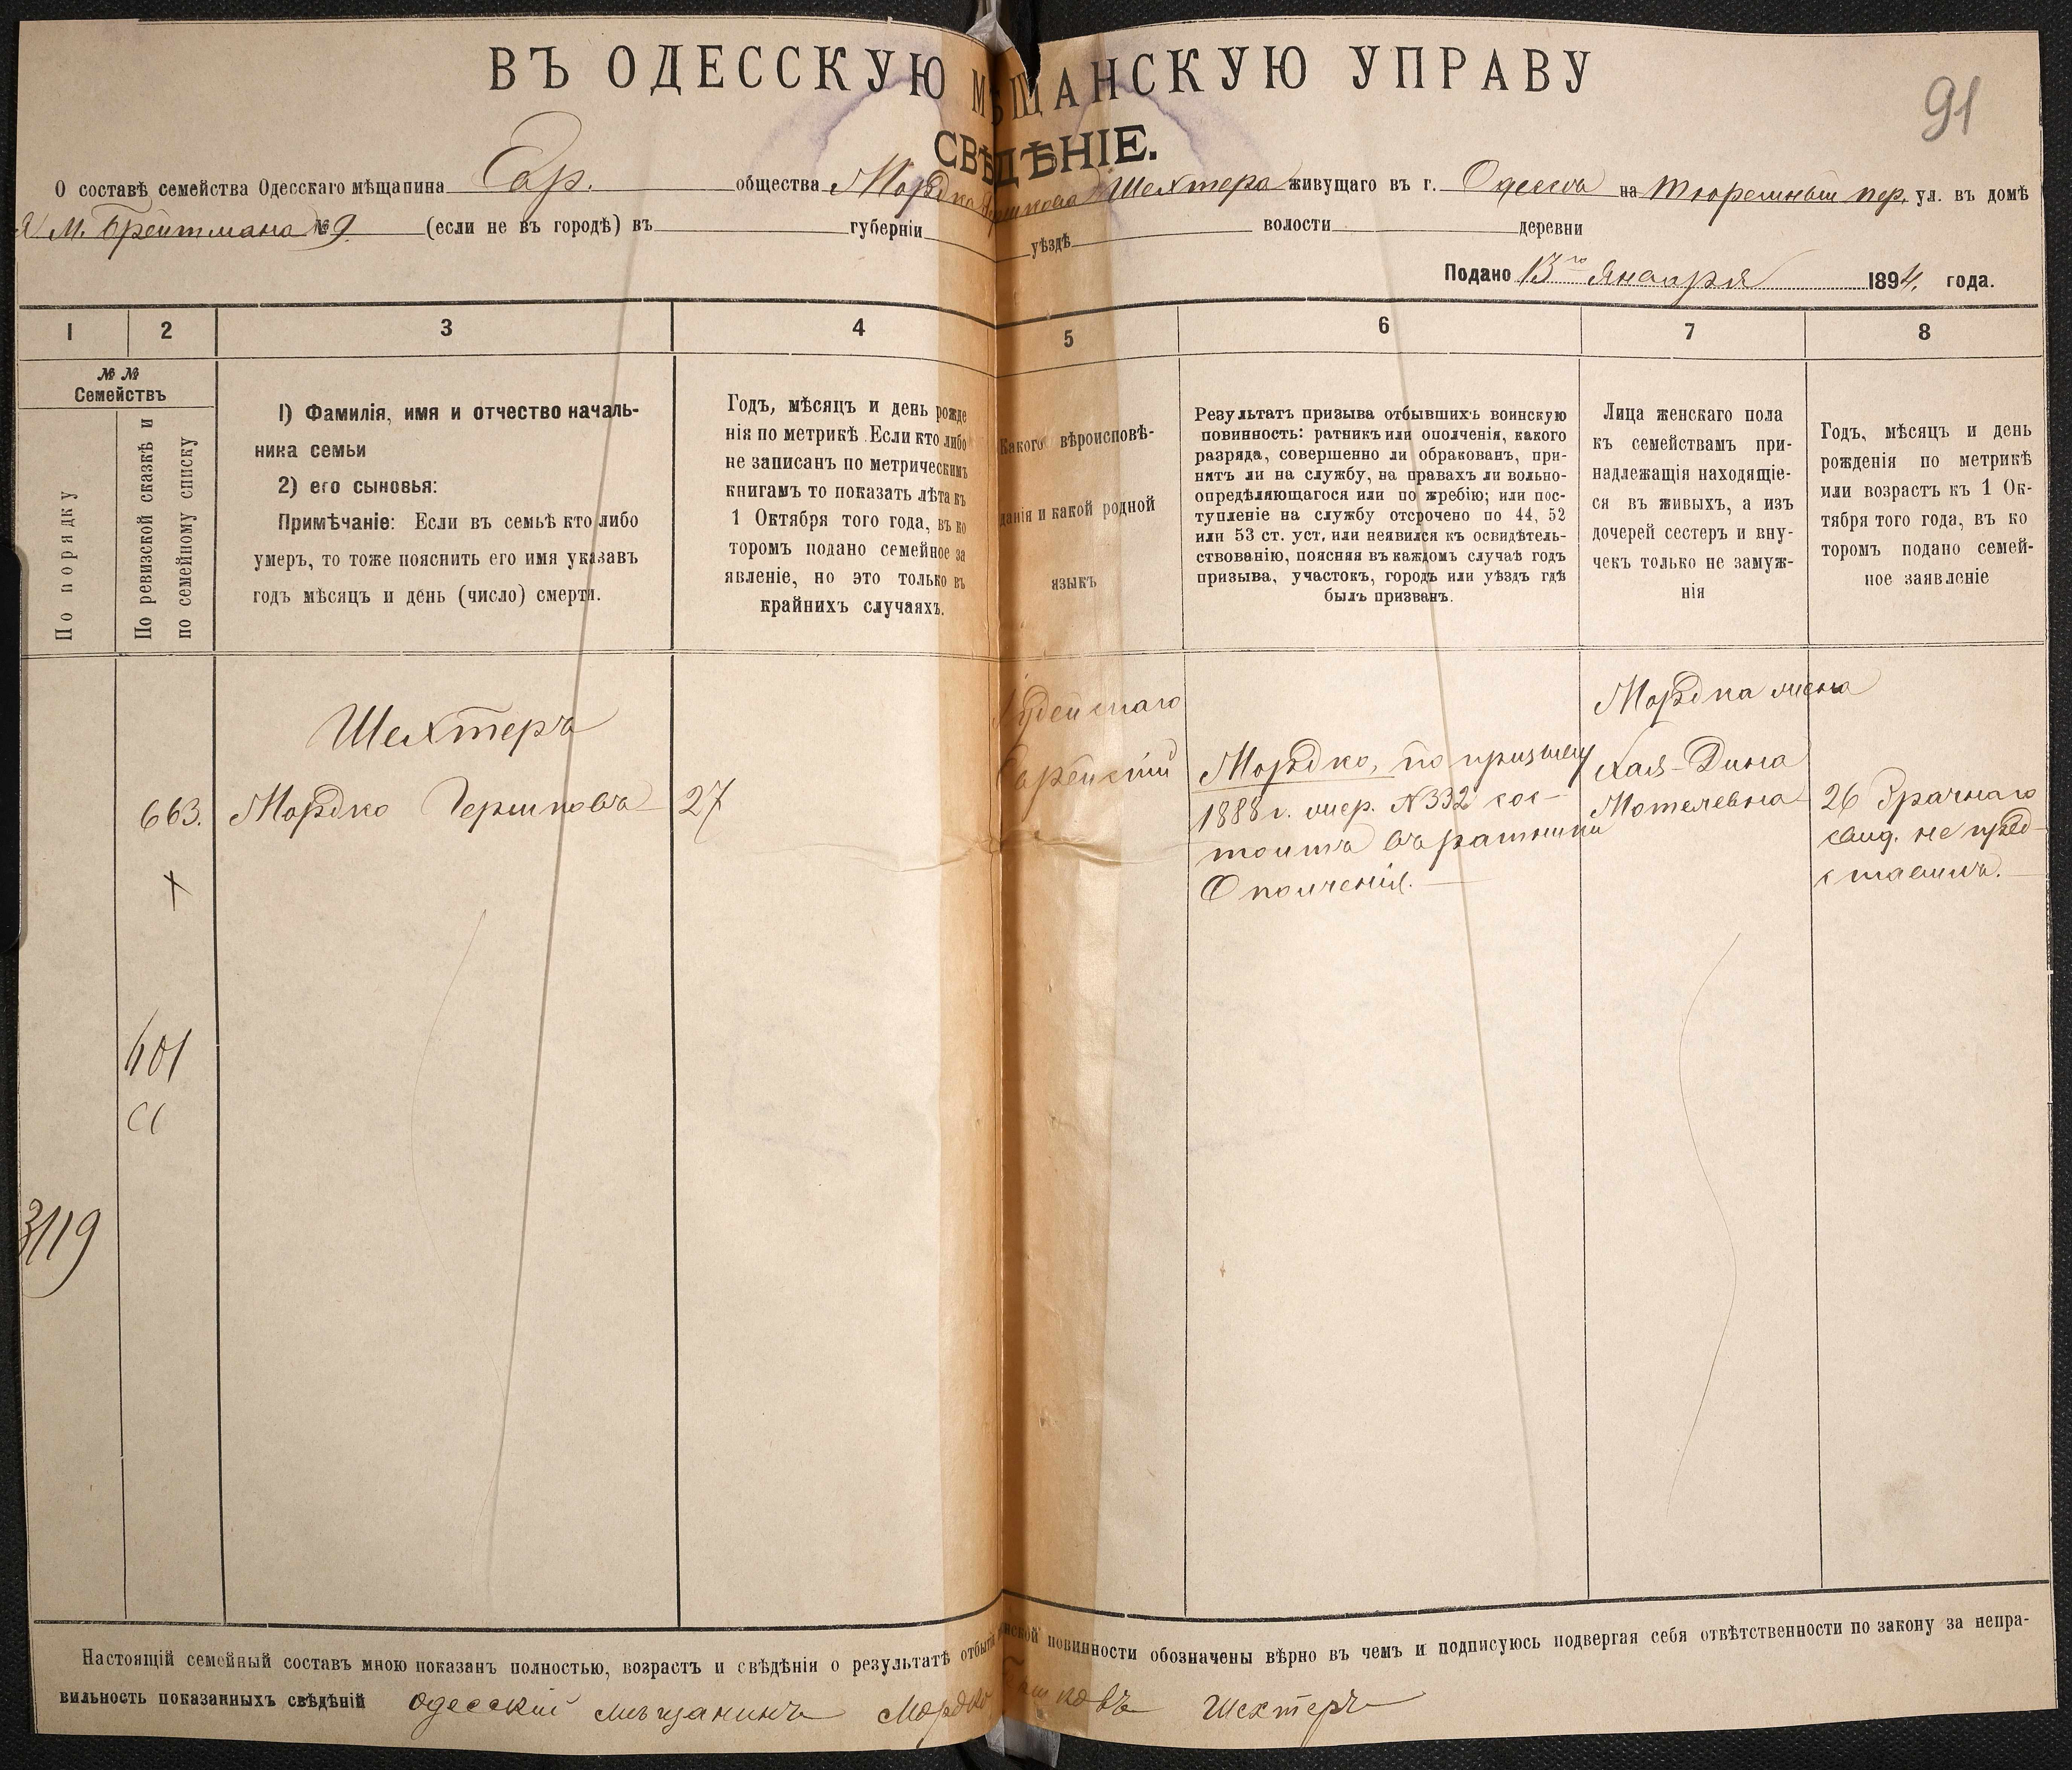 ВЪ ОДЕССКУЮ МѢЩАНСКУЮ УПРАВУ
91
СВѢДѢНІЕ.
О составѣ семейства Одесскаго мѣщанина Евр. общества Мордка Гершкова Шехтера живущаго въ г. Одессѣ на Тюремный пер. ул. въ домѣ
М. Брейтмана № 9. (если не въ городѣ) въ губерніи уѣздѣ волости деревни
Подано 13го Января 1894. года.
1 2 3 4 5 6 7 8
№№
Семействъ
По порядку
По ревизской сказкѣ и
по семейному списку
1) Фамилія, имя и отчество началь-
ника семьи
2) его сыновья:
Примѣчаніе: Если въ семьѣ кто либо
умеръ, то тоже пояснить его имя указавъ
годъ мѣсяцъ и день (число) смерти.
Годъ, мѣсяцъ и день рожде
нія по метрикѣ. Если кто либо
не записанъ по метрическимъ
книгамъ то показать лѣта къ
1 Октября того года, въ ко
торомъ подано семейное за
явленіе, но это только въ
крайнихъ случаяхъ.
Какого вѣроисповѣ-
данія и какой родной
языкъ
Результатъ призыва отбывшихъ воинскую
повинность: ратникъ или ополченія, какого
разряда, совершенно ли обракованъ, при-
нятъ ли на службу, на правахъ ли вольно-
опредѣляющагося или по жребію; или пос-
тупленіе на службу отсрочено по 44, 52
или 53 ст. уст. или неявился къ освидѣтель-
ствованію, поясняя въ каждомъ случаѣ годъ
призыва, участокъ, городъ или уѣздъ гдѣ
былъ призванъ.
Лица женскаго пола
къ семействамъ при-
надлежащія находящіе-
ся въ живыхъ, а изъ
дочерей сестеръ и вну-
чекъ только не замуж-
нія
Годъ, мѣсяцъ и день
рожденія по метрикѣ
или возрастъ къ 1 Ок-
тября того года, въ ко
торомъ подано семей-
ное заявленіе
Шехтеръ
663. Мордко Гершковъ 27
Іудейскаго
Еврейскій
Мордко, по призыву
1888 г. жер. № 332 сос-
тоитъ въ ратники
Ополченія.
Мордка жена
Хая-Дина
Мотелевна
26 Брачнаго
свид. не пред-
ставилъ.
401
3119
Настоящій семейный составъ мною показанъ полностью, возрастъ и свѣдѣнія о результатѣ отбытія воинской повинности обозначены вѣрно въ чемъ и подписуюсь подвергая себя отвѣтственности по закону за непра-
вильность показанныхъ свѣдѣній одесскій мѣщанинъ Мордко Гашковъ Шехтеръ